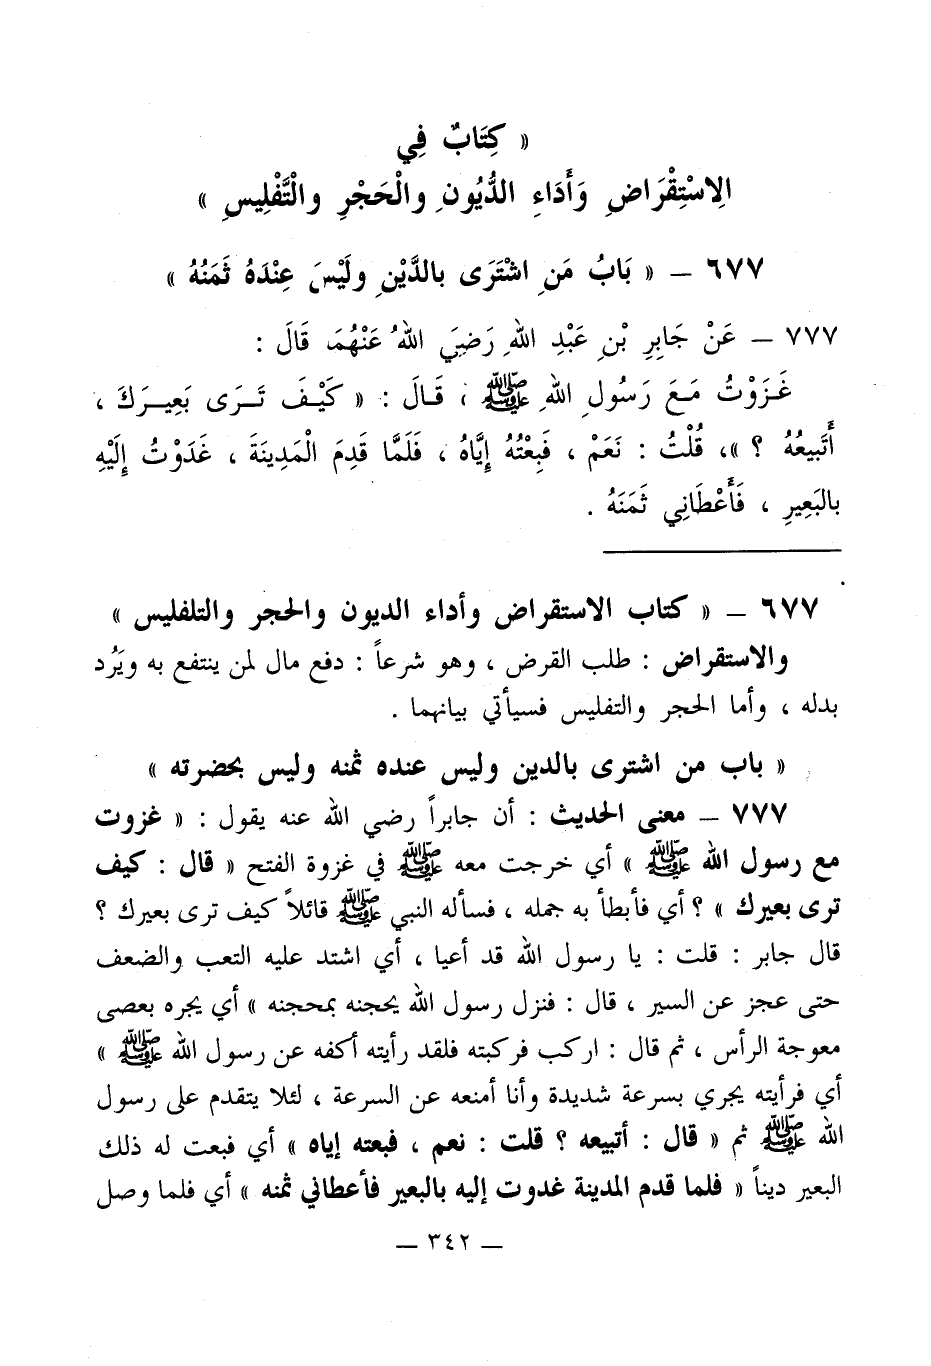 « كِتَابٌ فِي
الِاسْتِقْرَاضِ وَأَدَاءِ الدُّيُونِ والْحَجْرِ والْتَّفْلِيسِ »
٦٧٧ – « بَابُ مَنِ اشْتَرَى بالدَّيْنِ ولَيْسَ عِنْدَهُ ثَمَنُهُ »
٧٧٧ – عَنْ جَابِرِ بْنِ عَبْدِ اللهِ رَضِيَ اللهُ عَنْهُمَا قَالَ :
غَزَوْتُ مَعَ رَسُولِ اللهِ ﷺ ، قَالَ : « كَيْفَ تَرَى بَعِيرَكَ ،
أَتَبِيعُهُ ؟ »، قُلْتُ : نَعَمْ ، فَبِعْتُهُ إِيَّاهُ ، فَلَمَّا قَدِمَ الْمَدِينَةَ ، غَدَوْتُ إِلَيْهِ
بالبَعِيرِ ، فَأَعْطَانِي ثَمَنَهُ .
٦٧٧ – « كتاب الاستقراض وأداء الديون والحجر والتلفليس »
والاستقراض : طلب القرض ، وهو شرعاً : دفع مال لمن ينتفع به ويَرُد
بدله ، وأما الحجر والتفليس فسيأتي بيانهما .
« باب من اشترى بالدين وليس عنده ثمنه وليس بحضرته »
٧٧٧ – معنى الحديث : أن جابراً رضي الله عنه يقول : « غزوت
مع رسول الله ﷺ » أي خرجت معه ﷺ في غزوة الفتح « قال : كيف
ترى بعيرك » ؟ أي فأبطأ به جمله ، فسأله النبي ﷺ قائلاً كيف ترى بعيرك ؟
قال جابر : قلت : يا رسول الله قد أعيا ، أي اشتد عليه التعب والضعف
حتى عجز عن السير ، قال : فنزل رسول الله يحجنه بمحجنه » أي يجره بعصى
معوجة الرأس ، ثم قال : اركب فركبته فلقد رأيته أكفه عن رسول الله ﷺ »
أي فرأيته يجري بسرعة شديدة وأنا أمنعه عن السرعة ، لئلا يتقدم على رسول
الله ﷺ ثم « قال : أتبيعه ؟ قلت : نعم ، فبعته إياه » أي فبعت له ذلك
البعير ديناً « فلما قدم المدينة غدوت إليه بالبعير فأعطاني ثمنه » أي فلما وصل
– ٣٤٢ –